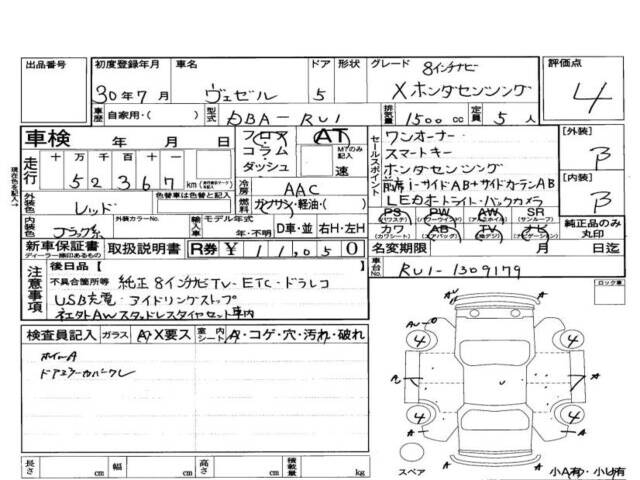 出品番号 初度登録年月 車名 ドア 形状 グレード 8インチナビ 評価点
30年7月 ヴェゼル 5 Xホンダセンシング 4
車歴 自家用・( ) 型式 DBA-RU1 排気量 1500cc 定員 5人
車検 年 月 日 フロア コラム・ダッシュ AT MTのみ記入 速
走行 十万 万 千 百 十 一 52367 km
外装色 レッド 色替車は色替と記入 冷房 AAC 燃料 ガソリン・軽油・( )
内装色 ブラック系 外装カラーNo. 輸入車 モデル年式 年・不明 D車・並 右H・左H
セールスポイント ワンオーナー
スマートキー
ホンダセンシング
i-サイドAB+サイドカーテンAB
LEDオートライト・バックカメラ
PS (パワステ) PW (パワーウインド) AW (アルミホイール) SR (サンルーフ)
カワ (カワシート) AB (エアバッグ) TV (地デジ) ナビ (ナビゲーション)
純正品のみ丸印
[外装] B
[内装] B
新車保証書 ディーラー捺印あるもの 取扱説明書 R券 ¥11,050
名変期限 月 日迄
車台No. RU1-1309179
注意事項 後日品【 】
不具合箇所等 純正8インチナビTV・ETC・ドラレコ
USB充電・アイドリングストップ
社外AWスタッドレスタイヤセット車内
検査員記入 ガラス A・X要ス 室内シート A・コゲ・穴・汚れ・破れ
ホイールA
ドアミラーカバークレ
ロック車
AU
AU
4 4
A A
4 4
A A
A
スペア 小A有・小U有
長さ cm 幅 cm 高さ cm 積載量 kg